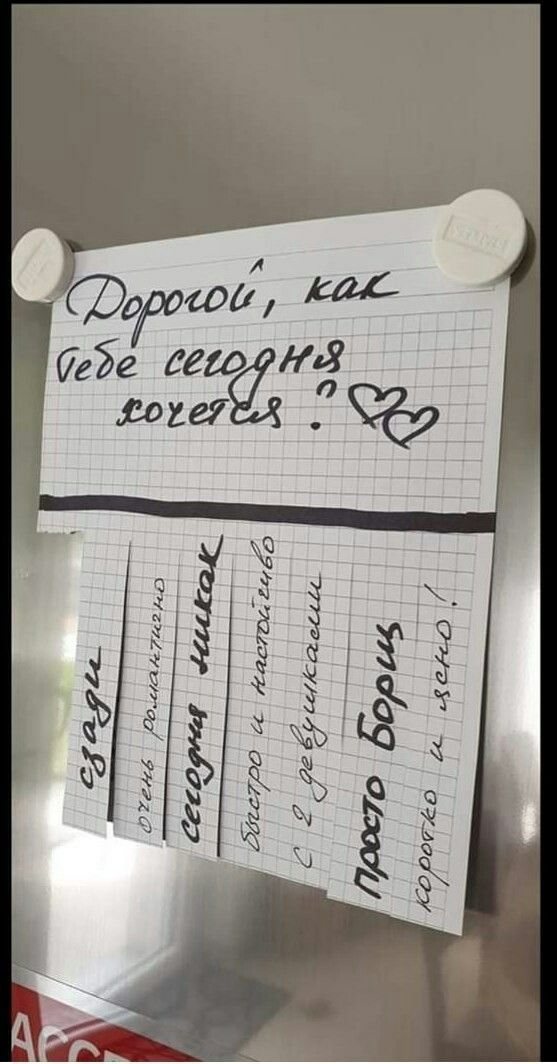 Дорогой, как
тебе сегодня
хочется?
сзади
очень романтично
сегодня никак
быстро и настойчиво
с 2 девушками
просто Борщ
коротко и ясно!
АССЕ